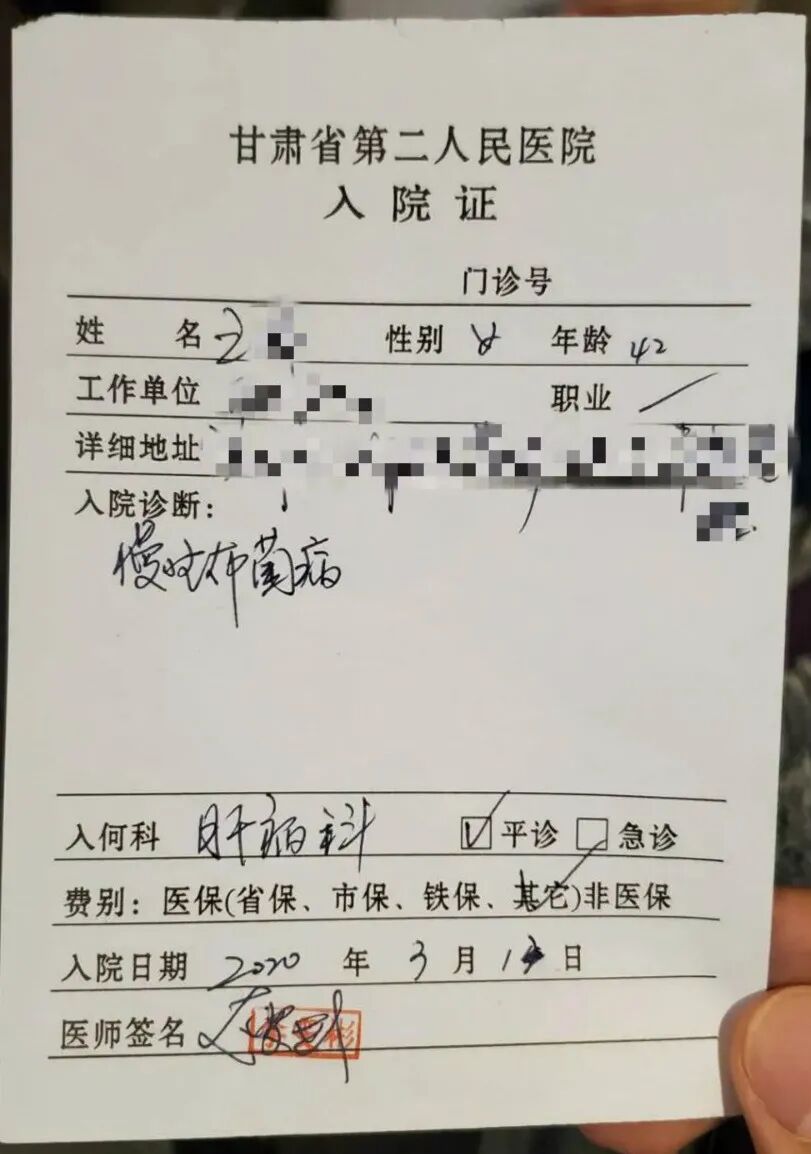 甘肃省第二人民医院
入院证
门诊号
姓 名 王 性别 女 年龄 42
工作单位 职业 /
详细地址
入院诊断：
慢性布菌病
入何科 肝病科 ☑平诊 □急诊
费别：医保(省保、市保、铁保、其它)非医保
入院日期 2020 年 3 月 日
医师签名